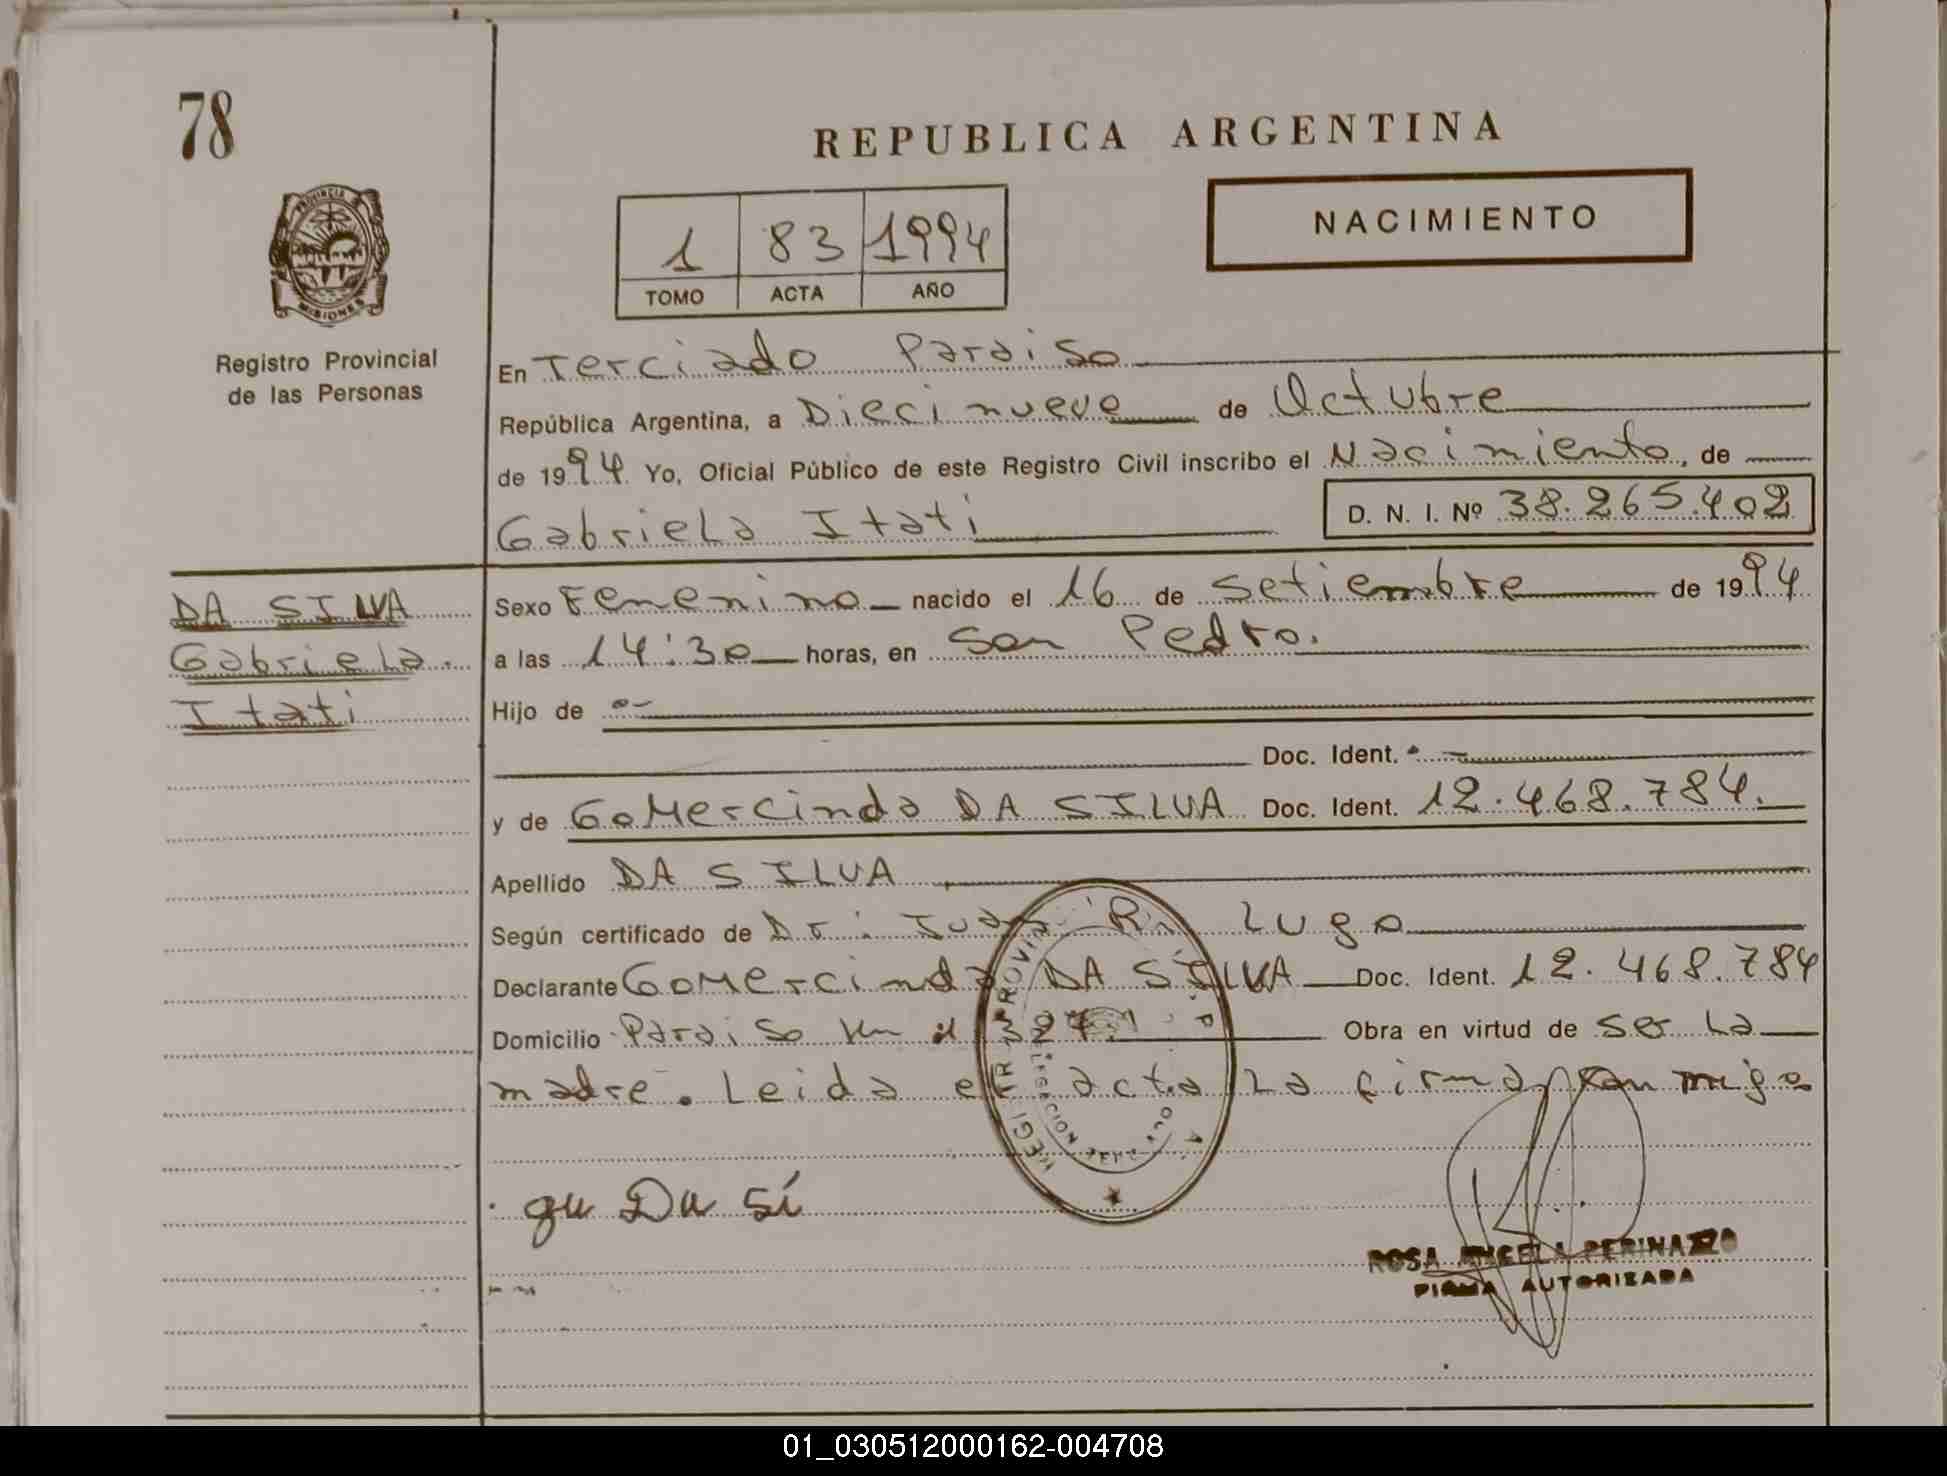 78
REPUBLICA ARGENTINA
PROVINCIA
MISIONES
NACIMIENTO
1 83 1994
TOMO ACTA AÑO
Registro Provincial
de las Personas
En Terciado Paraiso
República Argentina, a Diecinueve de Octubre
de 1994 Yo, Oficial Público de este Registro Civil inscribo el Nacimiento, de
Gabriela Itati D. N. I. Nº 38.265.402
DA SILVA
Gabriela
Itati
Sexo Femenino nacido el 16 de Setiembre de 1994
a las 14:30 horas, en San Pedro.
Hijo de
Doc. Ident.
y de GoMercinda DA SILVA Doc. Ident. 12.468.784.
Apellido DA SILVA
Según certificado de Dr: Juan R. Lugo
Declarante GoMercinda DA SILVA Doc. Ident. 12.468.784
Domicilio Paraiso Km Obra en virtud de ser La
madre. Leida el acta La firma con migo
gu Da sí
ROSA ANGELA PERINAZZO
FIRMA AUTORIZADA
01_030512000162-004708